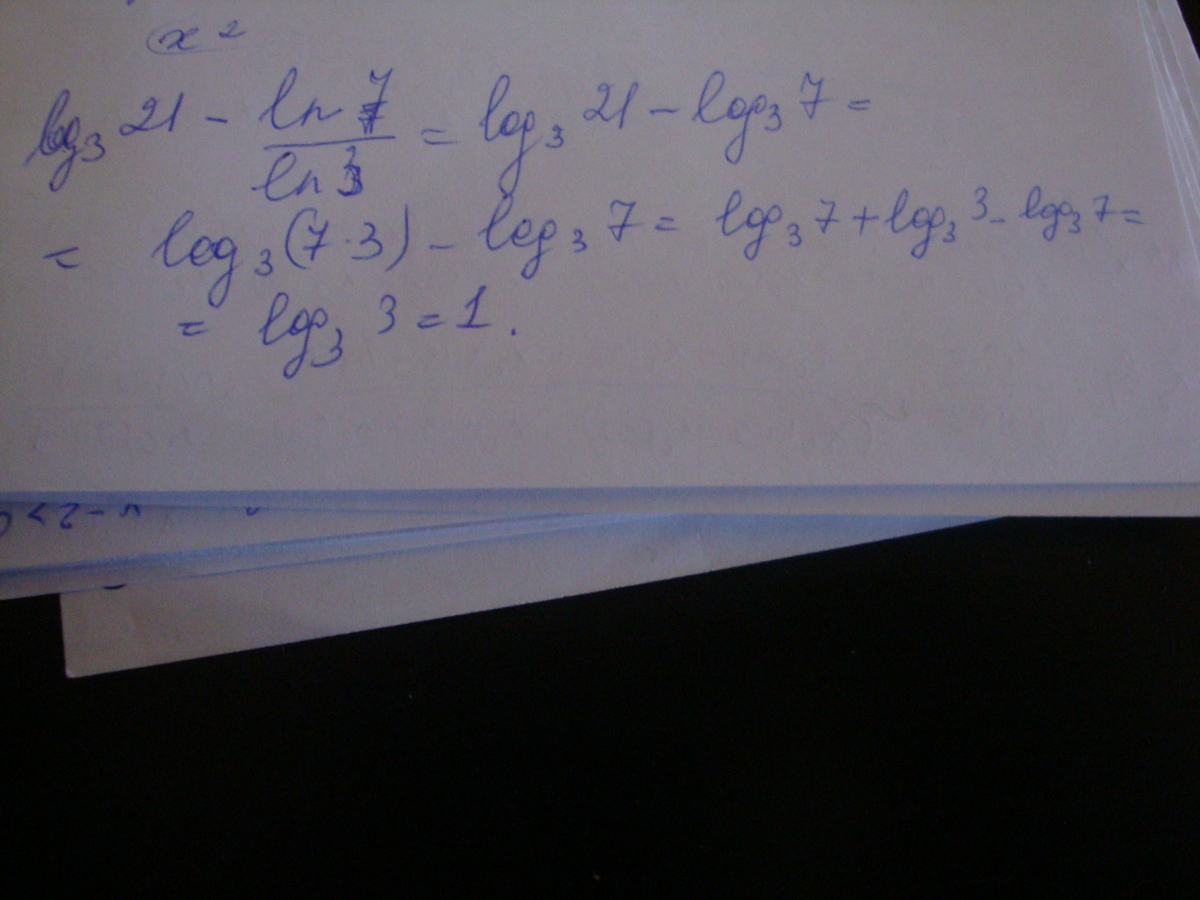 x²
log₃ 21 - ln 7 / ln 3 = log₃ 21 - log₃ 7 =
= log₃(7·3) - log₃ 7 = log₃ 7 + log₃ 3 - log₃ 7 =
= log₃ 3 = 1.